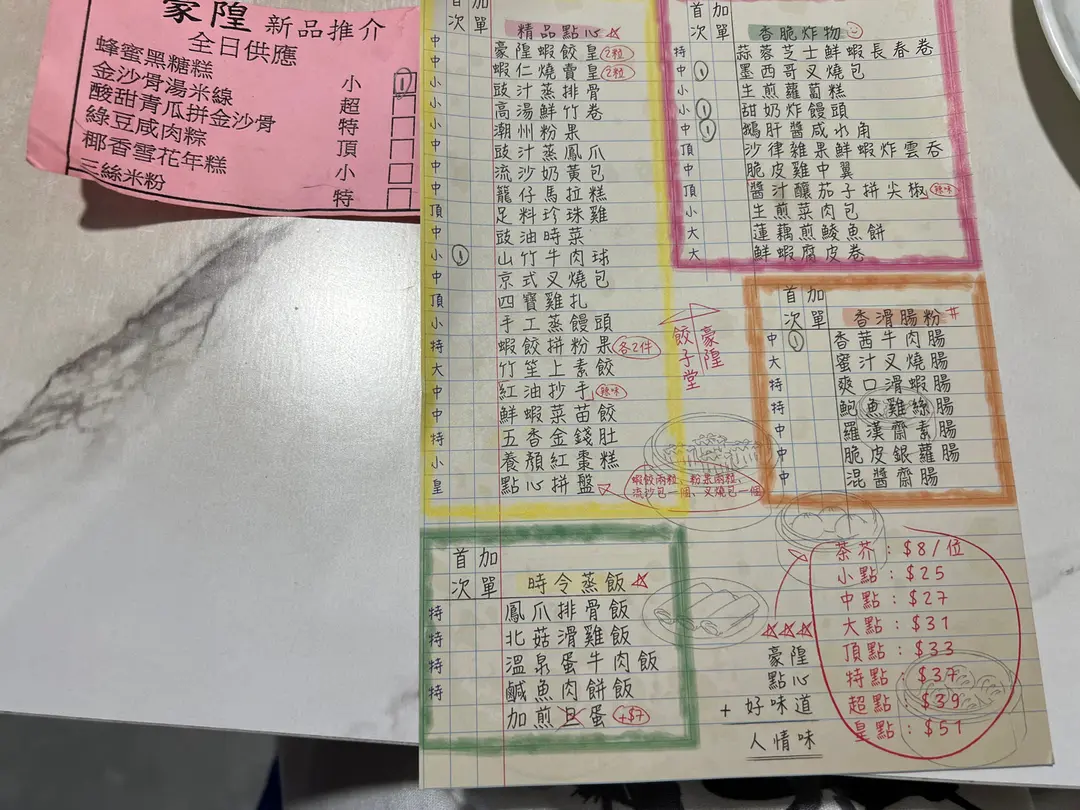 豪隍 新品推介
全日供應
蜂蜜黑糖糕 小 1
金沙骨湯米線 超
酸甜青瓜拼金沙骨 特
綠豆咸肉粽 頂
椰香雪花年糕 小
三絲米粉 特
首次 加單 精品點心
中 豪隍蝦餃皇 2粒
中 蝦仁燒賣皇 2粒
小 豉汁蒸排骨
小 高湯鮮竹卷
小 潮州粉果
中 豉汁蒸鳳爪
中 流沙奶黃包
中 籠仔馬拉糕
頂 足料珍珠雞
中 豉油時菜
小 1 山竹牛肉球
中 京式叉燒包
頂 四寶雞扎
小 手工蒸饅頭
特 蝦餃拼粉果 各2件
大 竹笙上素餃
中 紅油抄手 辣味
中 鮮蝦菜苗餃
特 五香金錢肚
小 養顏紅棗糕
皇 點心拼盤
蝦餃兩粒、粉果兩粒、
流沙包一個、叉燒包一個
豪隍
餃子堂
首次 加單 時令蒸飯
特 鳳爪排骨飯
特 北菇滑雞飯
特 溫泉蛋牛肉飯
特 鹹魚肉餅飯
加煎蛋 +$7
首次 加單 香脆炸物
特 蒜蓉芝士鮮蝦長春卷
中 1 墨西哥叉燒包
小 生煎蘿蔔糕
小 1 甜奶炸饅頭
中 1 鵝肝醬咸水角
頂 沙律雜果鮮蝦炸雲吞
中 脆皮雞中翼
頂 醬汁釀茄子拼尖椒 辣味
小 生煎菜肉包
大 蓮藕煎鯪魚餅
大 鮮蝦腐皮卷
首次 加單 香滑腸粉
中 1 香茜牛肉腸
大 蜜汁叉燒腸
特 爽口滑蝦腸
特 鮑魚雞絲腸
中 羅漢齋素腸
中 脆皮銀蘿腸
中 混醬齋腸
茶芥：$8/位
小點：$25
中點：$27
大點：$31
頂點：$33
特點：$37
超點：$39
皇點：$51
豪隍
點心
+ 好味道
人情味